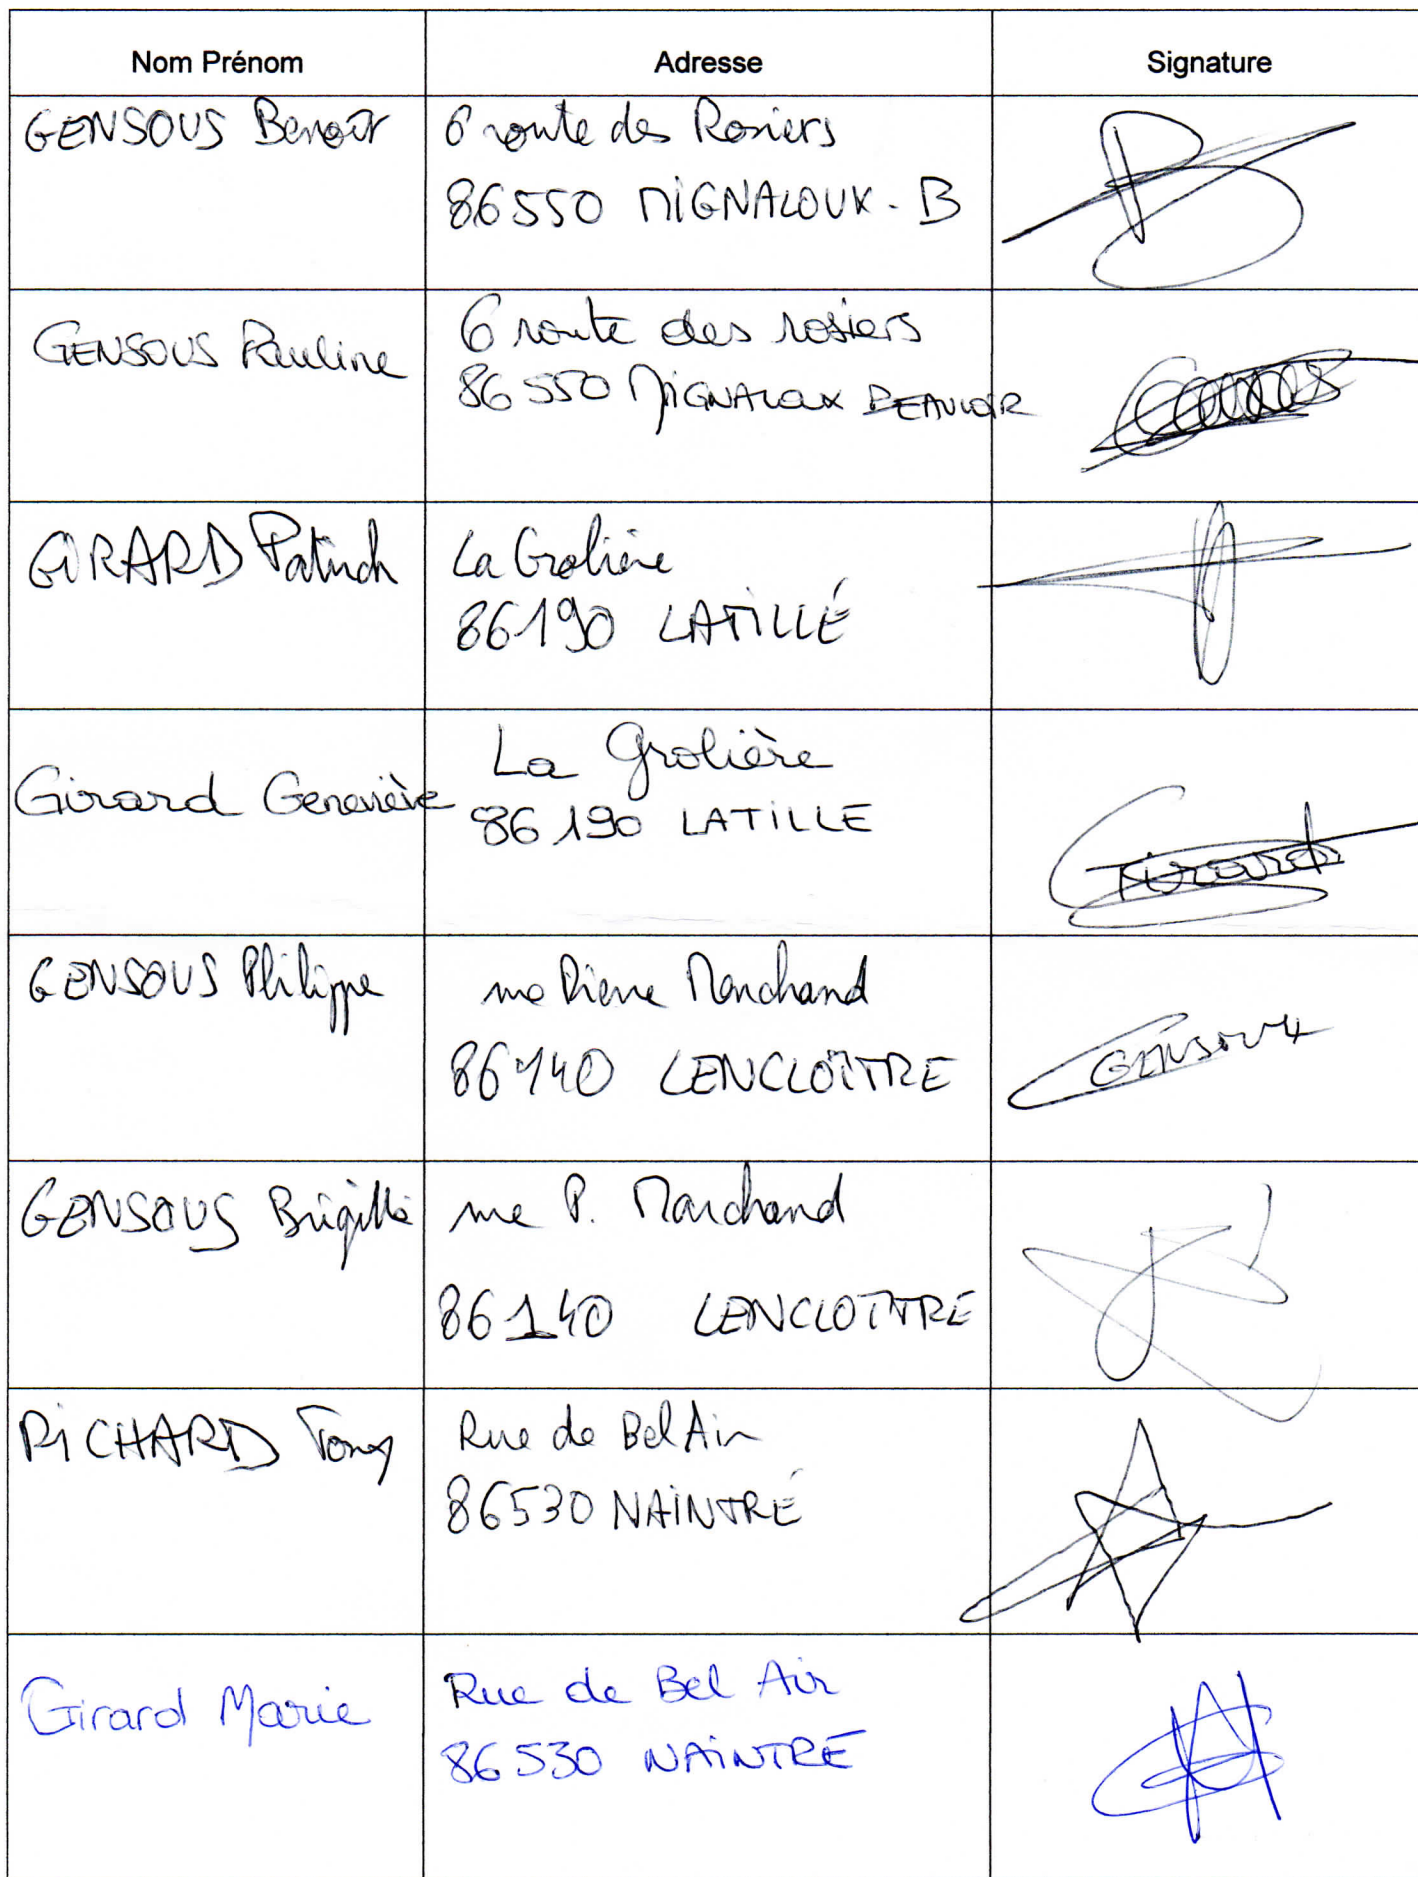 Nom Prénom
Adresse
Signature
GENSOUS Benoît
6 route des Rosiers
86550 MIGNALOUX - B
GENSOUS Pauline
6 route des rosiers
86550 MIGNALOUX BEAUVOIR
GIRARD Patrick
La Grolière
86190 LATILLÉ
Girard Geneviève
La Grolière
86190 LATILLE
Girard
GENSOUS Philippe
rue Pierre Marchand
86140 LENCLOÎTRE
GENSOUS
GENSOUS Brigitte
rue P. Marchand
86140 LENCLOITRE
RICHARD Tony
Rue de Bel Air
86530 NAINTRÉ
Girard Marie
Rue de Bel Air
86530 NAINTRÉ